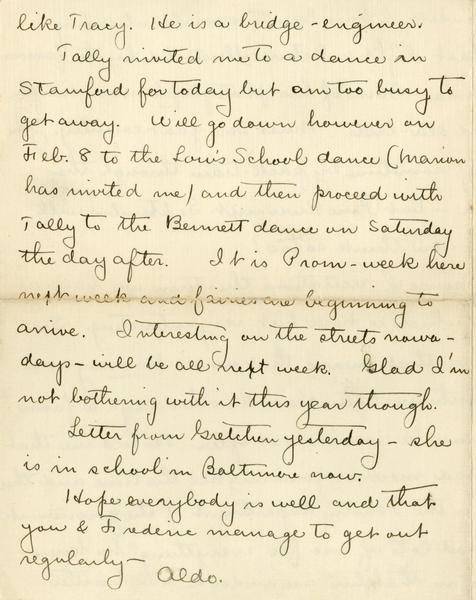 like Tracy. He is a bridge-engineer.
Tally invited me to a dance in
Stamford for today but am too busy to
get away. Will go down however on
Feb. 8 to the Low's School dance (Marion
has invited me) and then proceed with
Tally to the Bennett dance on Saturday
the day after. It is Prom-week here
next week and fairies are beginning to
arrive. Interesting on the streets nowa-
days - will be all next week. Glad I'm
not bothering with it this year though.
Letter from Gretchen yesterday - she
is in school in Baltimore now.
Hope everybody is well and that
you & Frederic manage to get out
regularly -
Aldo.